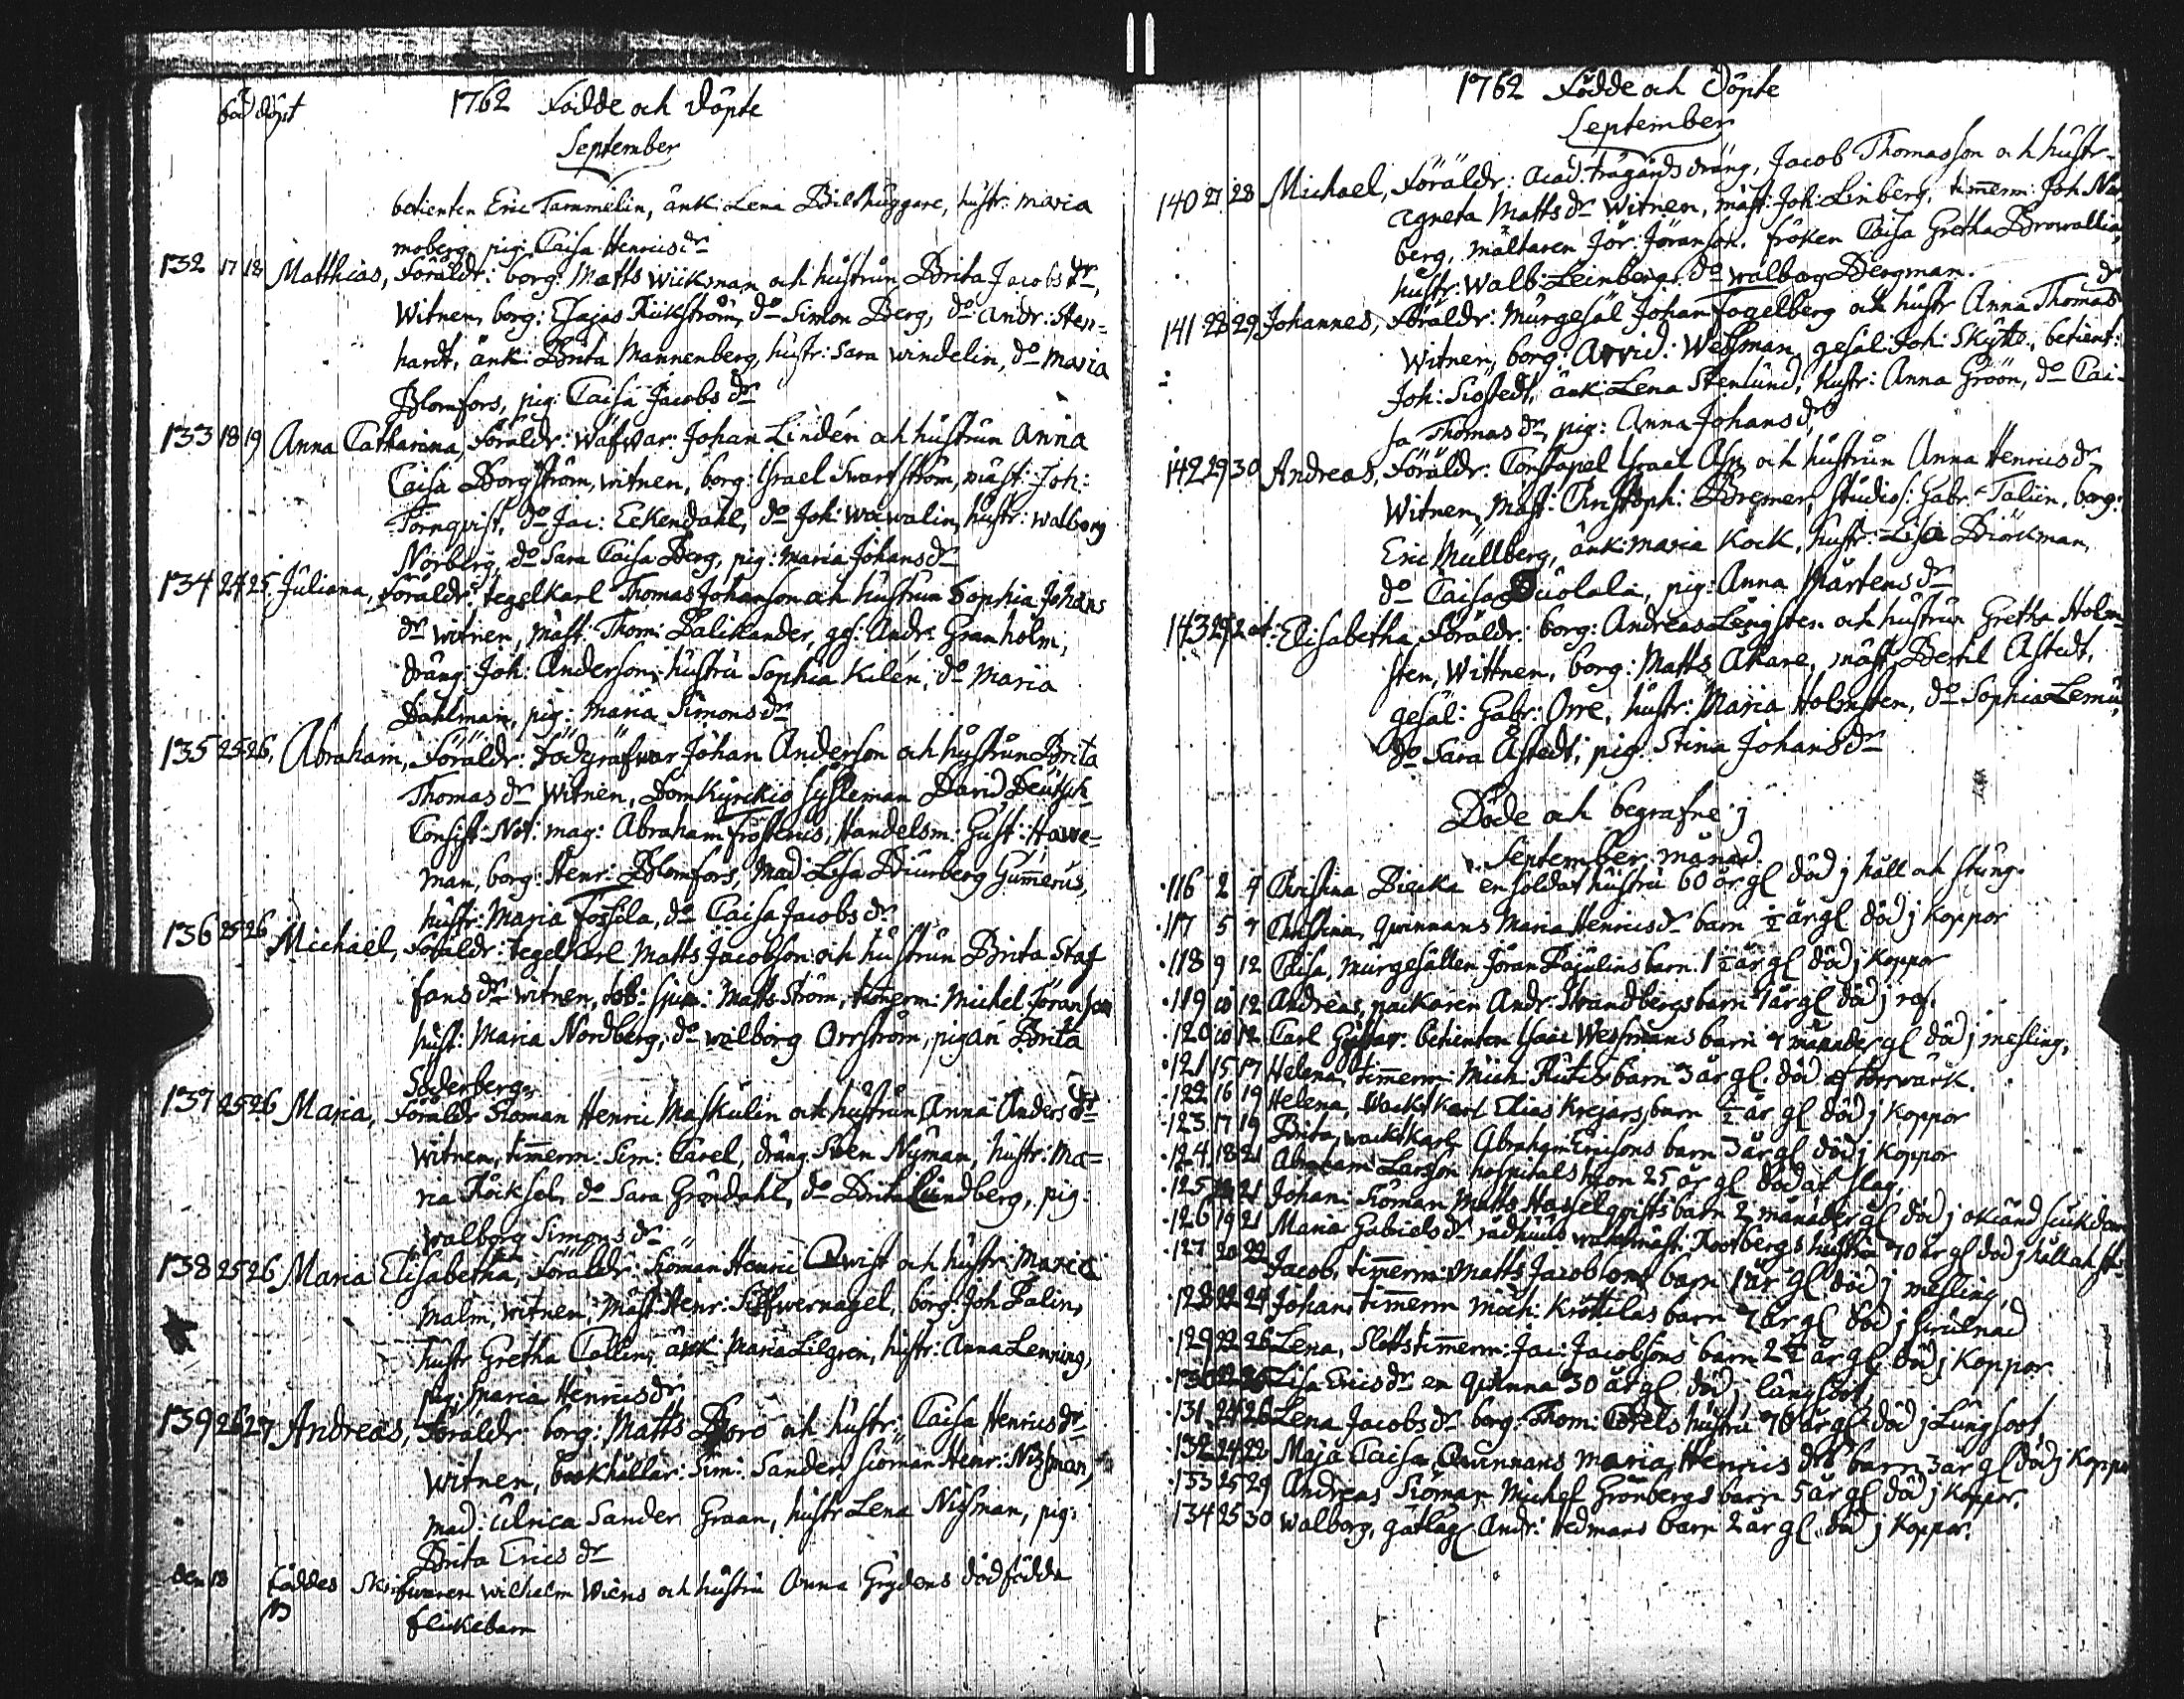 föd döpt 1762 Födde och Döpte
September
betienten Eric Tammelin, änk: Lena Bilthuggare, hustr: Maria
Moberg, pig: Caisa Henricsdr
132 17 18 Matthias, Föräldr: borg: Matts Wiiksman och hustrun Brita Jacobsdr,
Witnen, borg: Esajas Rükström, do Simon Berg, do Andr: Sten=
hardt, änk: Brita Mannenberg, hustr: Sara Windelin, do Maria
Blomfors, pig: Caisa Jacobsdr
133 18 19 Anna Catharina, Föräldr: Wäfwar: Johan Lindén och hustrun Anna
Caisa Borgström, witnen, borg: Israel Swartström, mäst: Joh:
Törnqvist, do Jac: Eckendahl, do Joh: Wawalin, hustr: Walborg
Norberg, do Sara Caisa Berg, pig: Maria Johansdr
134 24 25 Juliana, Föräldr: tegelkarl Thomas Johanson och hustrun Sophia Johans
dr witnen, mäst: Thom: Palikander, ges: Andr: Granholm,
dräng: Joh: Anderson, hustru Sophia Kilén, do Maria
Dahlman, pig: Maria Simonsdr
135 25 26 Abraham, Föräldr: Dödgräfwar Johan Anderson och hustrun Brita
Thomasdr Witnen, Domkyrckio sysleman David Deutsch
Consist: Not: mag: Abraham Frosterus, Handelsm: Gust: Hawe=
man, borg: Henr: Blomfors, Mad Lisa Biurberg Gummerus,
hustr: Maria Fossila, do Caisa Jacobsdr
136 25 26 Michaël, Föräldr: tegelkarl Matts Jacobson och hustrun Brita Staf
fansdr witnen, Matts Ström, timerm: Michel Jöranson
hust: Maria Nordberg, do Walborg Orrström, pigan Brita
Söderberg
137 25 26 Maria, Föräldr Sioman Henric Maskulin och hustrun Anna Andersdr
Witnen, timerm: Sim: Carel, dräng Sven Nyman, hustr: Ma=
ria Röcksol, do Sara Gröndahl, do Brita Lindberg, pig:
Walborg Simonsdr
138 25 26 Maria Elisabetha, Föräldr: Sioman Henric Qwist och hustr: Maria
Malm, witnen, Mäst: Henr: Silfwernagel, borg: Joh Palin,
hustr Gretha Collin, änk: Maria Lilgren, hustr: Anna Lenning,
pig: Maria Henricsdr
139 26 27 Andreas, Föräldr: borg: Matts Boro och hustr: Caisa Henricsdr
Witnen, bookhållar: Sim: Sander, sioman Henr: Nisman,
Mad: Ulrica Sander Graan, hustr Lena Nisman, pig:
Brita Ericsdr
den 18 föddes Skrifwaren Wilhelm Wiens och hustru Anna Grydens dödfödda
flickebarn
1762 Födde och Döpte
September
140 27 28 Michael, Föräldr: Acad: trägårds dräng, Jacob Thomasson och hustr
Agneta Mattsdr Witnen, mäst: Joh: Linberg, timerm: Joh Nor
berg, mältaren Jör: Jöranson, fröken Caisa Gretha Browallia,
hustr: Walb: Leinberg, do Walborg Bergman.
141 28 29 Johannes, Föräldr: Murgesäl Johan Fogelberg och hustr Anna Thomas dr
Witnen, borg: Arvid: Wessman, gesäl: Joh: Skytte, betient:
Joh: Siöstedt, änk: Lena Stenlund, hustr: Anna Gröön, do Cai-
sa Thomasdr, pig: Anna Johansdr
142 29 30 Andreas, Föräldr: Constapel Israel Asp och hustrun Anna Henricsdr
Witnen, Mäst: Christoph: Bremer, studios: Gabr: Taliin, borg:
Eric Müllberg, änk: Maria Kock, hustr: Lisa Biörckman,
do Caisa Suolala, pig: Anna Mårtensdr
143 29 2 oct: Elisabetha, Föräldr: borg: Andreas Lengsten och hustrun Gretha Holm-
sten, Wittnen, borg: Matts Akare, mäst: Bertil Åstedt,
gesäl: Gabr: Orre, hustr: Maria Holmsten, do Sophia Lemu,
do Sara Åstedt, pig. Stina Johansdr
Döde och begrafne j
September månad.
116 2 4 Christina Piecka en soldat hustru 60 år gl död j håll och stüng.
117 5 7 Christina, qwinnans Maria Henricsdr barn ½ år gl död j koppor
118 9 12 Caisa, murgesällen Jöran Pajulins barn 1½ år gl död j koppor
119 10 12 Andreas, packaren Andr: Strandbergs barn 1 år gl död j ros.
120 10 12 Carl Gustav: betienten Isaac Wessmans barn 9 månader gl död j mesling,
121 15 17 Helena, timerm: Mich: Rutis barn 3 år gl. död af torrwärk.
122 16 19 Helena, Wacktkarl Elias Krejars, barn ½ år gl död j koppor
123 17 19 Brita, wacktkarl Abraham Ericsons barn 3 år gl död j koppor
124 18 21 Abraham Larsson hospitals hion 25 år gl död af slag,
125 21 Johan: Sioman Matts Hasselqvists barn 2 månader gl död j okiänd siukdom
126 19 21 Maria Gabrielsdr rådhuus wachtmäst: Rootbergs hustru 70 år gl död j håll och st:
127 20 22 Jacob, timerm: Matts Jacobsons barn 1 år gl död j mesling,
128 22 24 Johan, timerm Mich: Krottilas barn 7 år gl död j siwlnad
129 22 26 Lena, Slottstimerm: Jac: Jacobsons barn 2½ år gl, död j koppor.
130 22 26 Lisa Ericsdr en qwinna 30 år gl död j lungsoot,
131 24 26 Lena Jacobsdr borg: Thom: Corels hustru 70 år gl död j Lungsoot,
132 24 28 Maja Caisa Qwinnans Maria Henrics drs barn 3 år gl död j kopp
133 25 29 Andreas Sioman Michel Grönbergs barn 5 år gl död j koppor.
134 25 30 Walborg, gåtlag Andr: Hedmans barn 2 år gl. död j koppor.